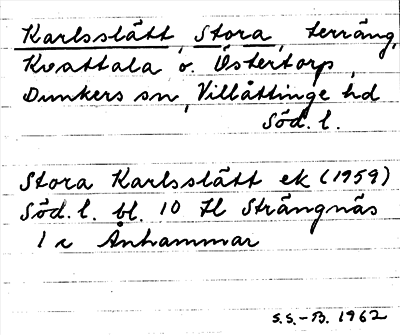 Karlsslätt, Stora, terräng,
Kvattala o. Östertorp,
Dunkers sn, Villåttinge hd
Söd. l.
Stora Karlsslätt ek (1959)
Söd. l. bl. 10 Hl Strängnäs
1 c Ånhammar
S.S.-B. 1962